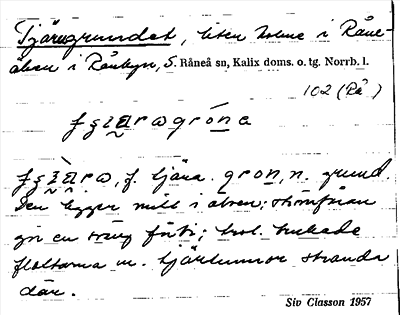 Tjärugrundet, liten holme i Råne-
älven i Rånbyn, S. Råneå sn, Kalix doms. o. tg. Norrb. l.
102 (Rå )
f. tjära. n. grund.
Den ligger mitt i älven; strömfåran
gör en sväng förbi; brukade
flottarna m. tjärtunnor stranda
där.
Siv Classon 1957